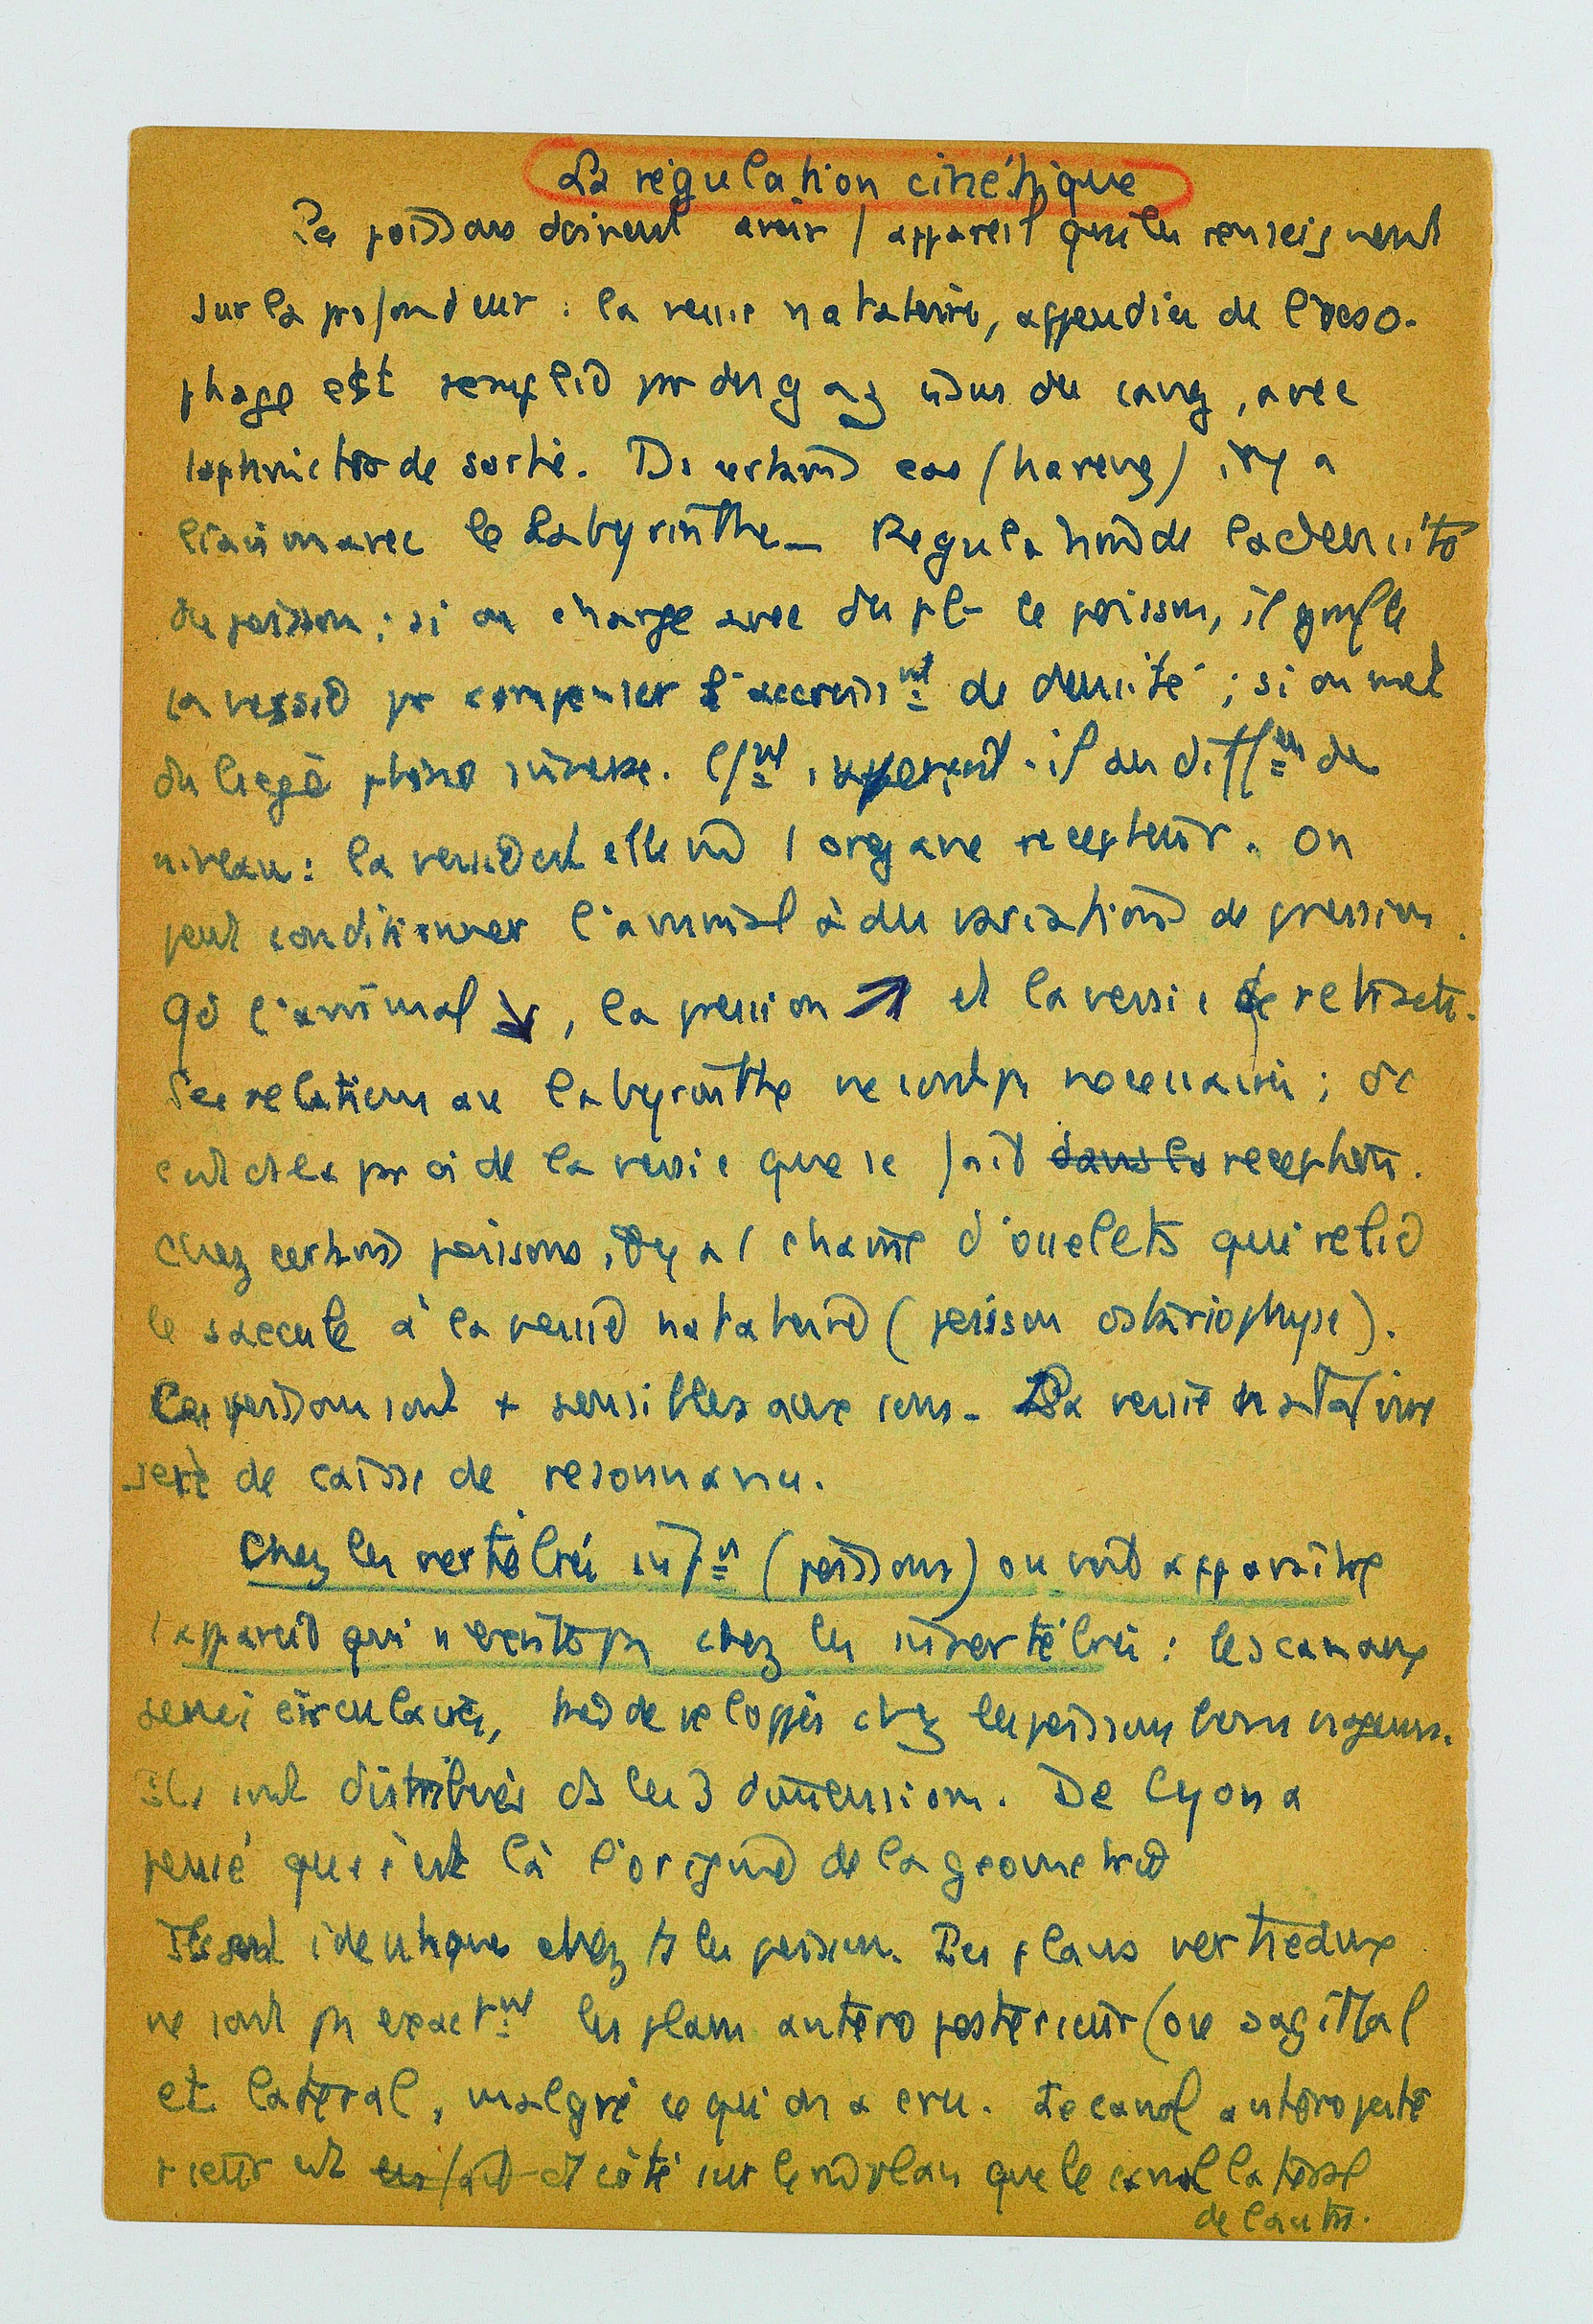 La régulation cinétique
Les poissons doivent avoir 1 appareil qui les renseignent
sur la profondeur : la vessie natatoire, appendice de l'oeso-
phage est remplie par des gaz issus du sang, avec
1 sphincter de sortie. Ds certains cas (hareng), il y a
liaison avec le Labyrinthe _ Regulation de la densité
du poisson ; si on charge avec du pb le poisson, il gonfle
la vessie pr compenser l'accroisst de densité ; si on met
du liège phéno inverse. Ct s'aperçoit-il des difffces de
niveau : la vessie est elle un 1 organe recepteur. On
peut conditionner l'animal à des variations de pression.
Qd l'animal ↘, la pression ↗ et la vessie se retracte.
Les relations au labyrinthe ne sont ps necessaires ; dc
c'est ds la paroi de la vessie que se fait dans la reception.
Chez certains poissons, il y a 1 chaine d'osselets qui relie
le saccule à la vessie natatoire (poisson ostariophyse).
Ces poissons sont + sensibles aux sons. La vessie natatoire
sert de caisse de resonnance.
Chez les vertébrés infrs (poissons) on voit apparaître
1 appareil qui n'existe ps chez les invertébrés : les canaux
semi circulaires, très developpés chez les poissons bons nageurs.
Ils sont distribués ds les 3 dimensions. De Cyon a
pensé que c'est là l'origine de la geometrie
Ils sont identiques chez ts les poissons. Les plans verticaux
ne sont ps exactmt les plans antero posterieur (ou sagittal
et latéral, malgré ce qu'on a cru. Le canal antéro posté
rieur est en fait d'1 côté sur le m̂ plan que le canal latéral
de l'autre.